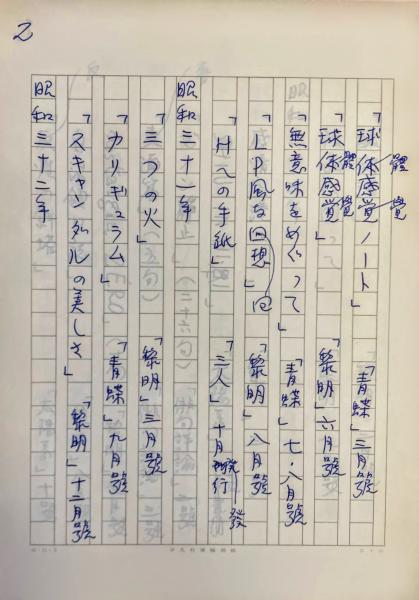 2
「球体感覚ノート」　「青蝶」三月號
體
覺
「球体感覚」　「黎明」六月號
體
覺
「無意味をめぐって」　「青蝶」七・八月號
「LP風な回想」　「黎明」八月號
回
「Hへの手紙」　「三人」十月發行
發
昭和三十一年
「三つの火」　「黎明」三月號
「カリギュラム」　「青蝶」九月號
「スキャンダルの美しさ」　「黎明」十二月號
昭和三十二年